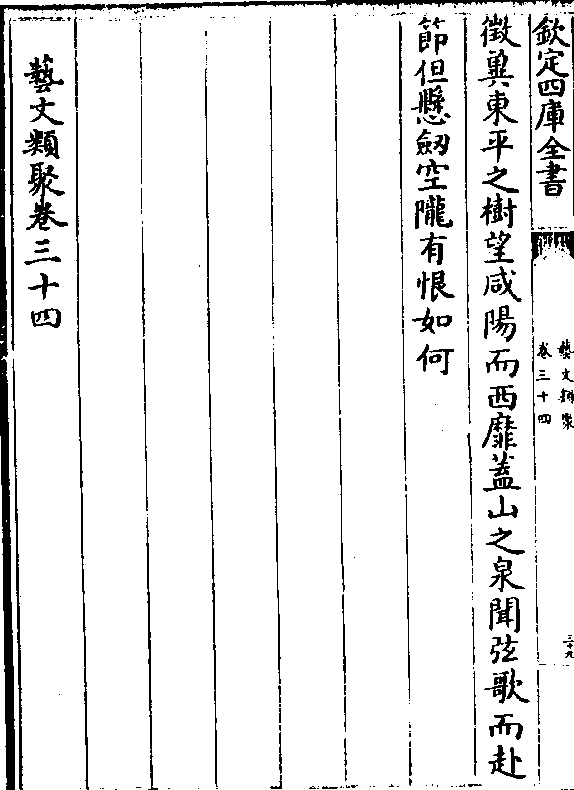 欽定四庫全書
藝文類聚
卷三十四
三十九
徵冀東平之樹望咸陽而西靡蓋山之泉聞弦歌而赴
節但懸劒空隴有恨如何
藝文類聚卷三十四